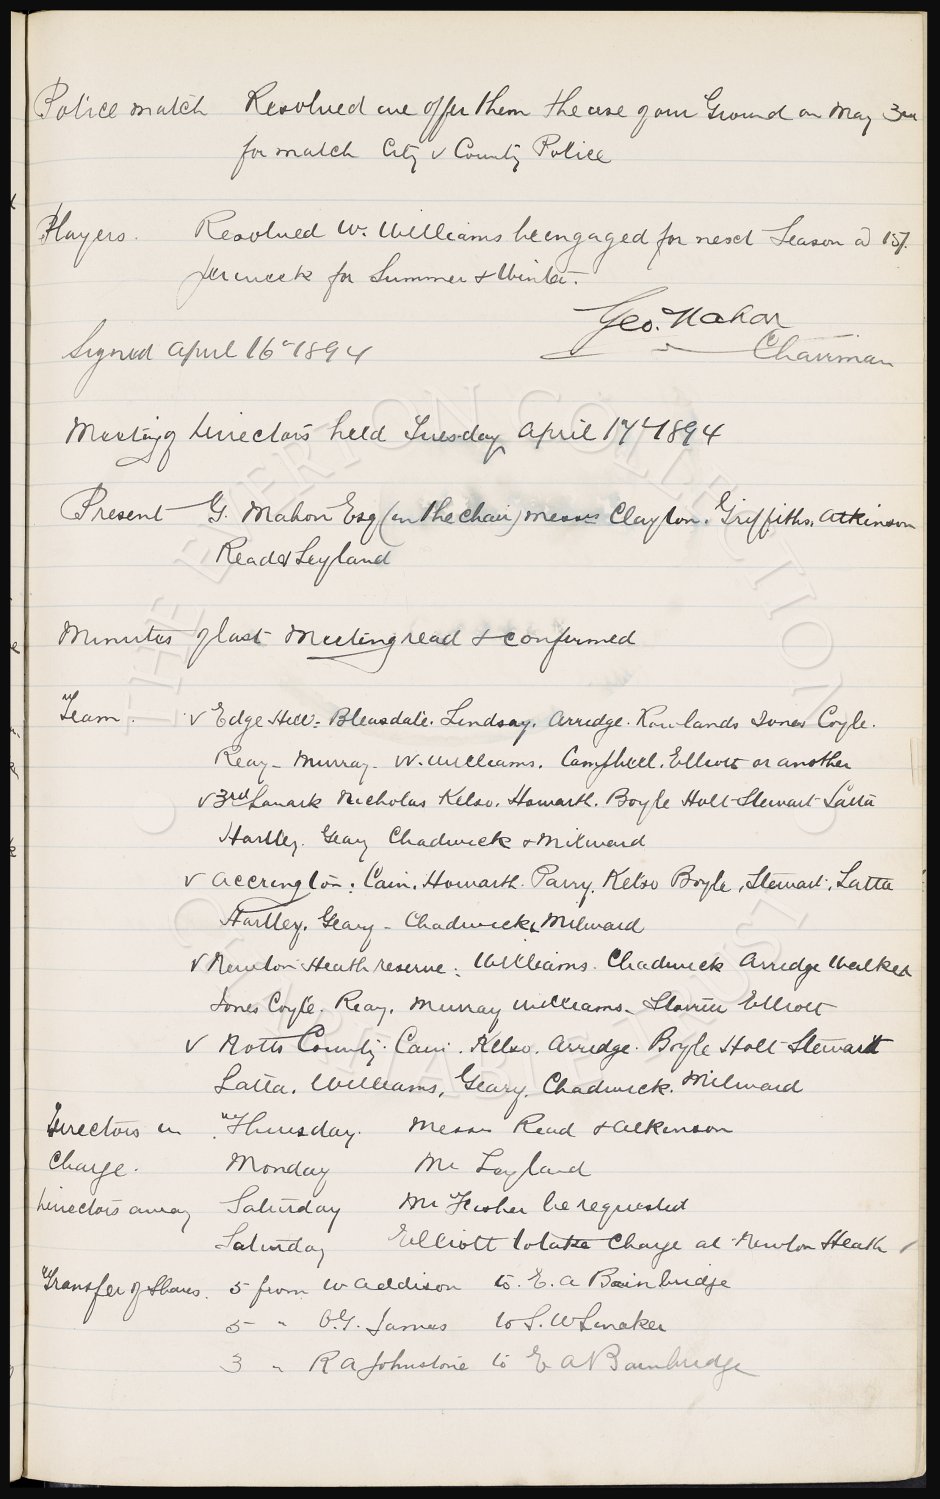 Police match Resolved we offer them the use of our Ground on May 3rd
for match City v County Police
Players. Resolved W. Williams be engaged for next Season @ 15/.
per week for Summer & Winter.
Geo. Mahon
Signed April 16th 1894 Chairman
Meeting of Directors held Tuesday April 17th 1894
Present G. Mahon Esq (in the chair) Messrs Clayton. Griffiths. Atkinson
Read & Leyland
Minutes of last Meeting read & confirmed
Team. v Edge Hill: Bleasdale. Lindsay. Arridge. Rowlands Jones Coyle.
Reay - Murray - W. Williams. Campbell. Elliott or another
v 3rd Lanark Nicholas Kelso. Howarth. Boyle Holt Stewart Latta
Hartley. Geary Chadwick & Milward
v Accrington: Cain. Howarth. Parry. Kelso Boyle, Stewart, Latta
Hartley. Geary - Chadwick & Milward
v Newton Heath reserve: Williams. Chadwick Arridge Walker
Jones Coyle. Reay. Murray Williams - Elliott
v Notts County. Cain. Kelso. Arridge. Boyle Holt Stewart
Latta. Williams, Geary. Chadwick. Milward
Directors in Thursday. Messrs Read & Atkinson
Charge. Monday Mr Leyland
Directors away Saturday Mr be requested
Saturday Elliott to take Charge at Newton Heath
Transfer of Shares. 5 from W Addison to E. A Bainbridge
5 " James to S. W Smoker
3 " R A Johnstone to E A Bainbridge
THE EVERTON COLLECTION
CHARITABLE TRUST